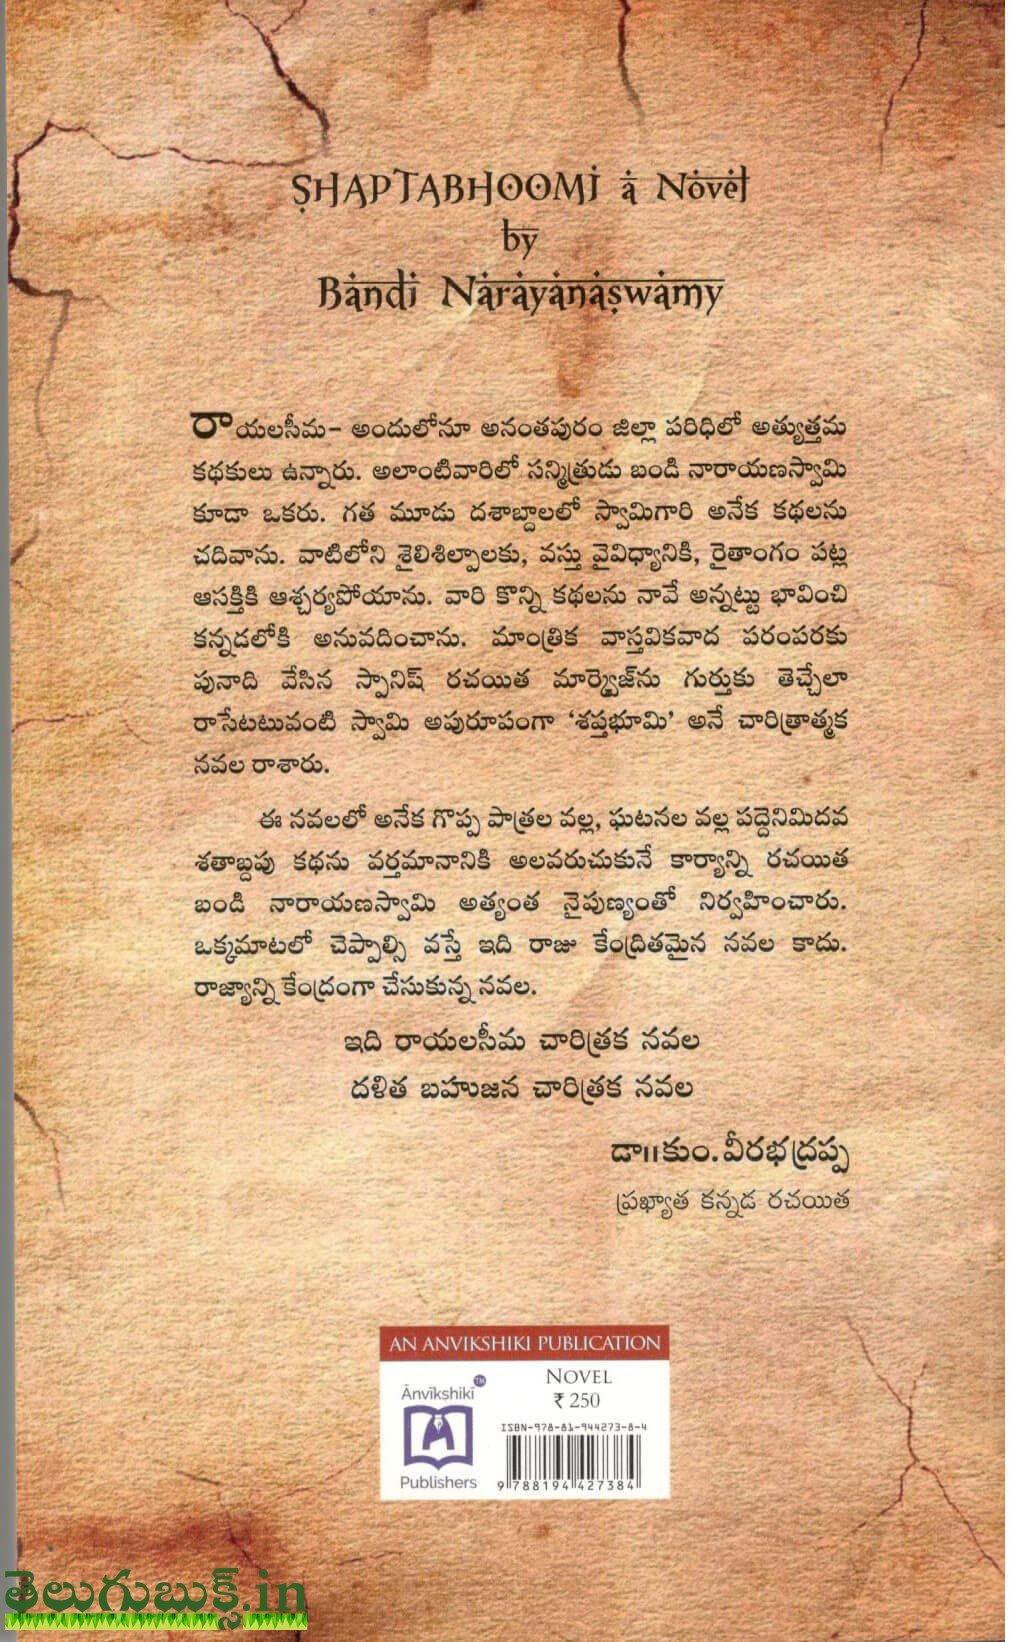 SHAPTABHOOMI a Novel
by
Bandi Narayanaswamy
రాయలసీమ- అందులోనూ అనంతపురం జిల్లా పరిధిలో అత్యుత్తమ
కథకులు ఉన్నారు. అలాంటివారిలో సన్మిత్రుడు బండి నారాయణస్వామి
కూడా ఒకరు. గత మూడు దశాబ్దాలలో స్వామిగారి అనేక కథలను
చదివాను. వాటిలోని శైలిశిల్పాలకు, వస్తు వైవిధ్యానికి, రైతాంగం పట్ల
ఆసక్తికి ఆశ్చర్యపోయాను. వారి కొన్ని కథలను నావే అన్నట్టు భావించి
కన్నడలోకి అనువదించాను. మాంత్రిక వాస్తవికవాద పరంపరకు
పునాది వేసిన స్పానిష్ రచయిత మార్క్వెజ్‌ను గుర్తుకు తెచ్చేలా
రాసేటటువంటి స్వామి అపురూపంగా 'శప్తభూమి' అనే చారిత్రాత్మక
నవల రాశారు.
ఈ నవలలో అనేక గొప్ప పాత్రల వల్ల, ఘటనల వల్ల పద్దెనిమిదవ
శతాబ్దపు కథను వర్తమానానికి అలవరుచుకునే కార్యాన్ని రచయిత
బండి నారాయణస్వామి అత్యంత నైపుణ్యంతో నిర్వహించారు.
ఒక్కమాటలో చెప్పాల్సి వస్తే ఇది రాజు కేంద్రితమైన నవల కాదు.
రాజ్యాన్ని కేంద్రంగా చేసుకున్న నవల.
ఇది రాయలసీమ చారిత్రక నవల
దళిత బహుజన చారిత్రక నవల
డా॥కుం.వీరభద్రప్ప
ప్రఖ్యాత కన్నడ రచయిత
AN ANVIKSHIKI PUBLICATION
Ānvīkshikī TM
Publishers
NOVEL
₹ 250
ISBN-978-81-944273-8-4
9 788194 427384
తెలుగుబుక్స్.in